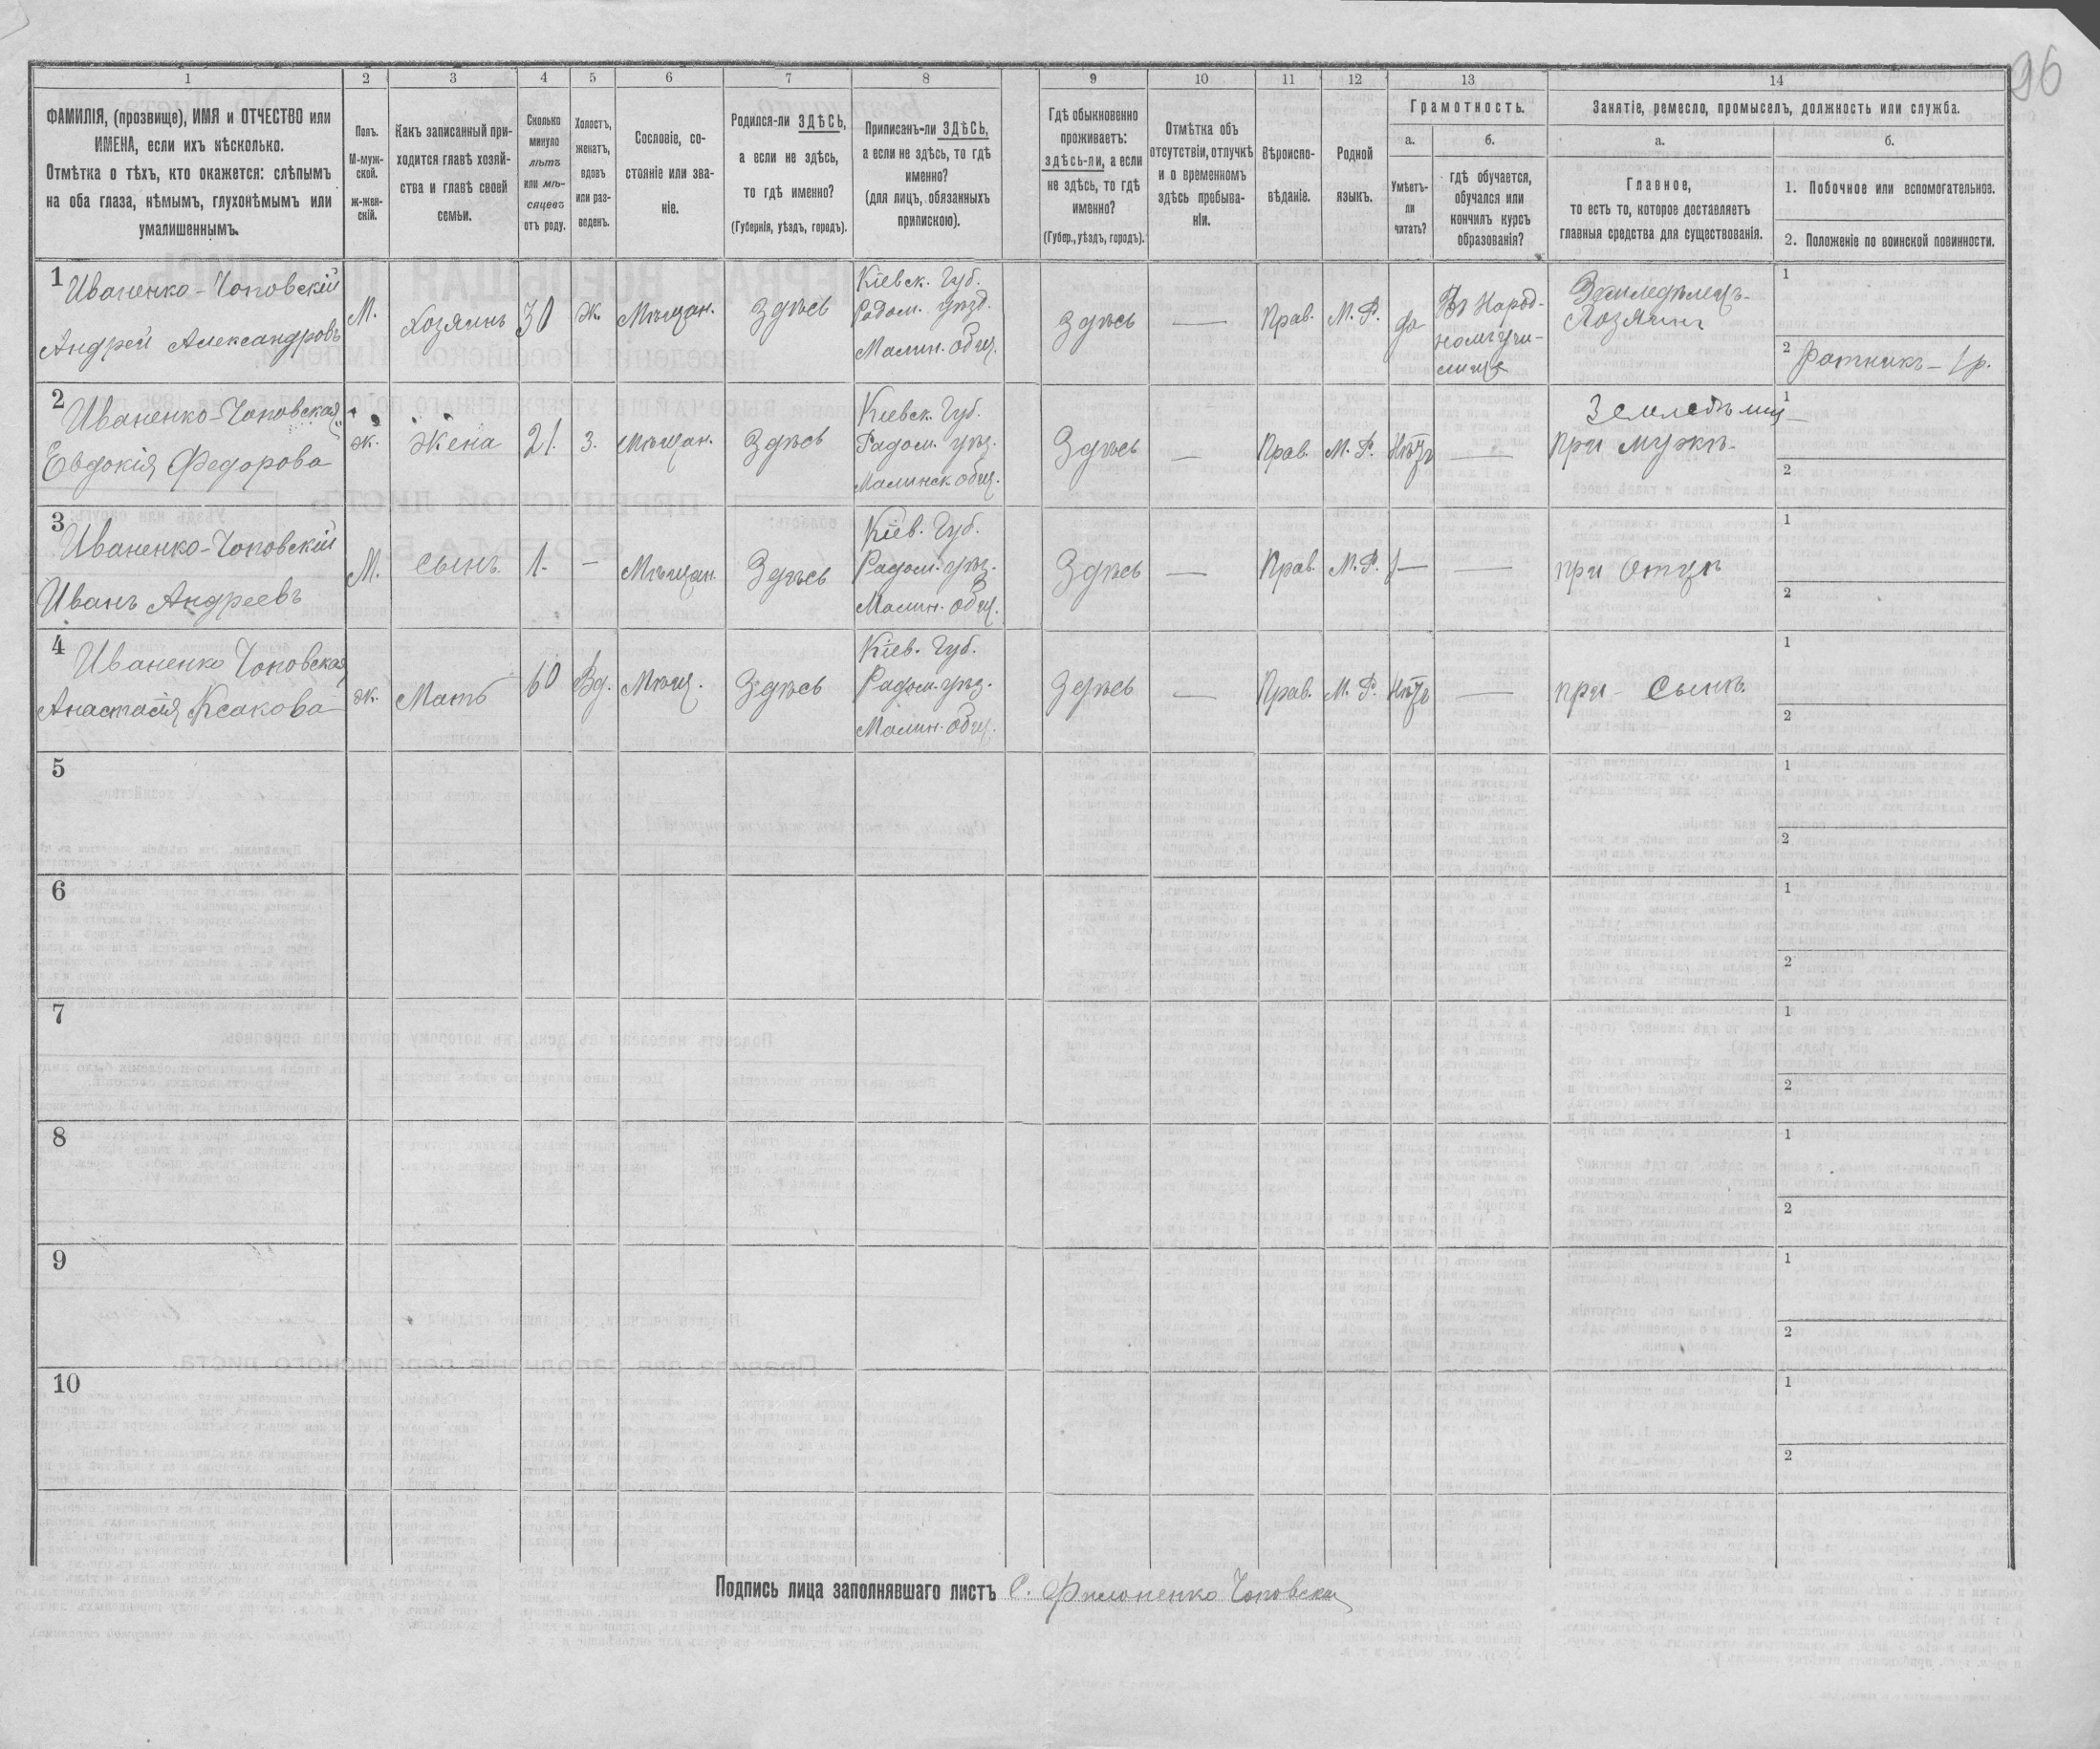 96
1 2 3 4 5 6 7 8 9 10 11 12 13 14
ФАМИЛІЯ, (прозвище), ИМЯ и ОТЧЕСТВО или
ИМЕНА, если ихъ нѣсколько.
Отмѣтка о тѣхъ, кто окажется: слѣпымъ
на оба глаза, нѣмымъ, глухонѣмымъ или
умалишеннымъ.
Полъ.
М-муж-
ской.
ж-жен-
скій.
Какъ записанный при-
ходится главѣ хозяй-
ства и главѣ своей
семьи.
Сколько
минуло
лѣтъ
или мѣ-
сяцевъ
отъ роду.
Холостъ,
женатъ,
вдовъ
или раз-
веденъ.
Сословіе, со-
стояніе или зва-
ніе.
Родился-ли ЗДѢСЬ,
а если не здѣсь,
то гдѣ именно?
(Губернія, уѣздъ, городъ).
Приписанъ-ли ЗДѢСЬ,
а если не здѣсь, то гдѣ
именно?
(для лицъ, обязанныхъ
припискою).
Гдѣ обыкновенно
проживаетъ:
здѣсь-ли, а если
не здѣсь, то гдѣ
именно?
(Губер., уѣздъ, городъ).
Отмѣтка объ
отсутствіи, отлучкѣ
и о временномъ
здѣсь пребыва-
ніи.
Вѣроиспо-
вѣданіе.
Родной
языкъ.
Грамотность.
а.
Умѣетъ-
ли
читать?
б.
гдѣ обучается,
обучался или
кончилъ курсъ
образованія?
Занятіе, ремесло, промыселъ, должность или служба.
а.
Главное,
то есть то, которое доставляетъ
главныя средства для существованія.
б.
1. Побочное или вспомогательное.
2. Положеніе по воинской повинности.
1
Иваненко-Чоповскій
Андрей Александровъ
М.
Хозяинъ
30
Ж.
Мѣщан.
Здѣсь
Кіевск. Губ.
Радом. уѣзд.
Малин. Общ.
Здѣсь
—
Прав.
М. Р.
да
Въ Народ-
номъ учи-
лищѣ
Земледѣлецъ-
Хозяинъ
1
2 Ратникъ — 1 р.
2
Иваненко-Чоповская
Евдокія Федорова
ж.
Жена
21.
З.
Мѣщан.
Здѣсь
Кіевск. Губ.
Радом. уѣз.
Малинск. общ.
Здѣсь
—
Прав.
М. Р.
Нѣтъ
—
при мужѣ.
1
2
3
Иваненко-Чоповскій
Иванъ Андреевъ
М.
Сынъ.
1.
—
Мѣщан.
Здѣсь
Кіев. Губ.
Радом. уѣз.
Малин. Общ.
Здѣсь
—
Прав.
М. Р.
—
—
при Отцѣ
1
2
4
Иваненко Чоповская
Анастасія Исакова
ж.
Мать
60
Вд.
Мѣщ.
Здѣсь
Кіев. Губ.
Радом. уѣз.
Малин. общ.
Здѣсь
—
Прав.
М. Р.
Нѣтъ
—
при Сынѣ.
1
2
5
1
2
6
1
2
7
1
2
8
1
2
9
1
2
10
1
2
Подпись лица заполнявшаго листъ С. Филоненко Чоповскій